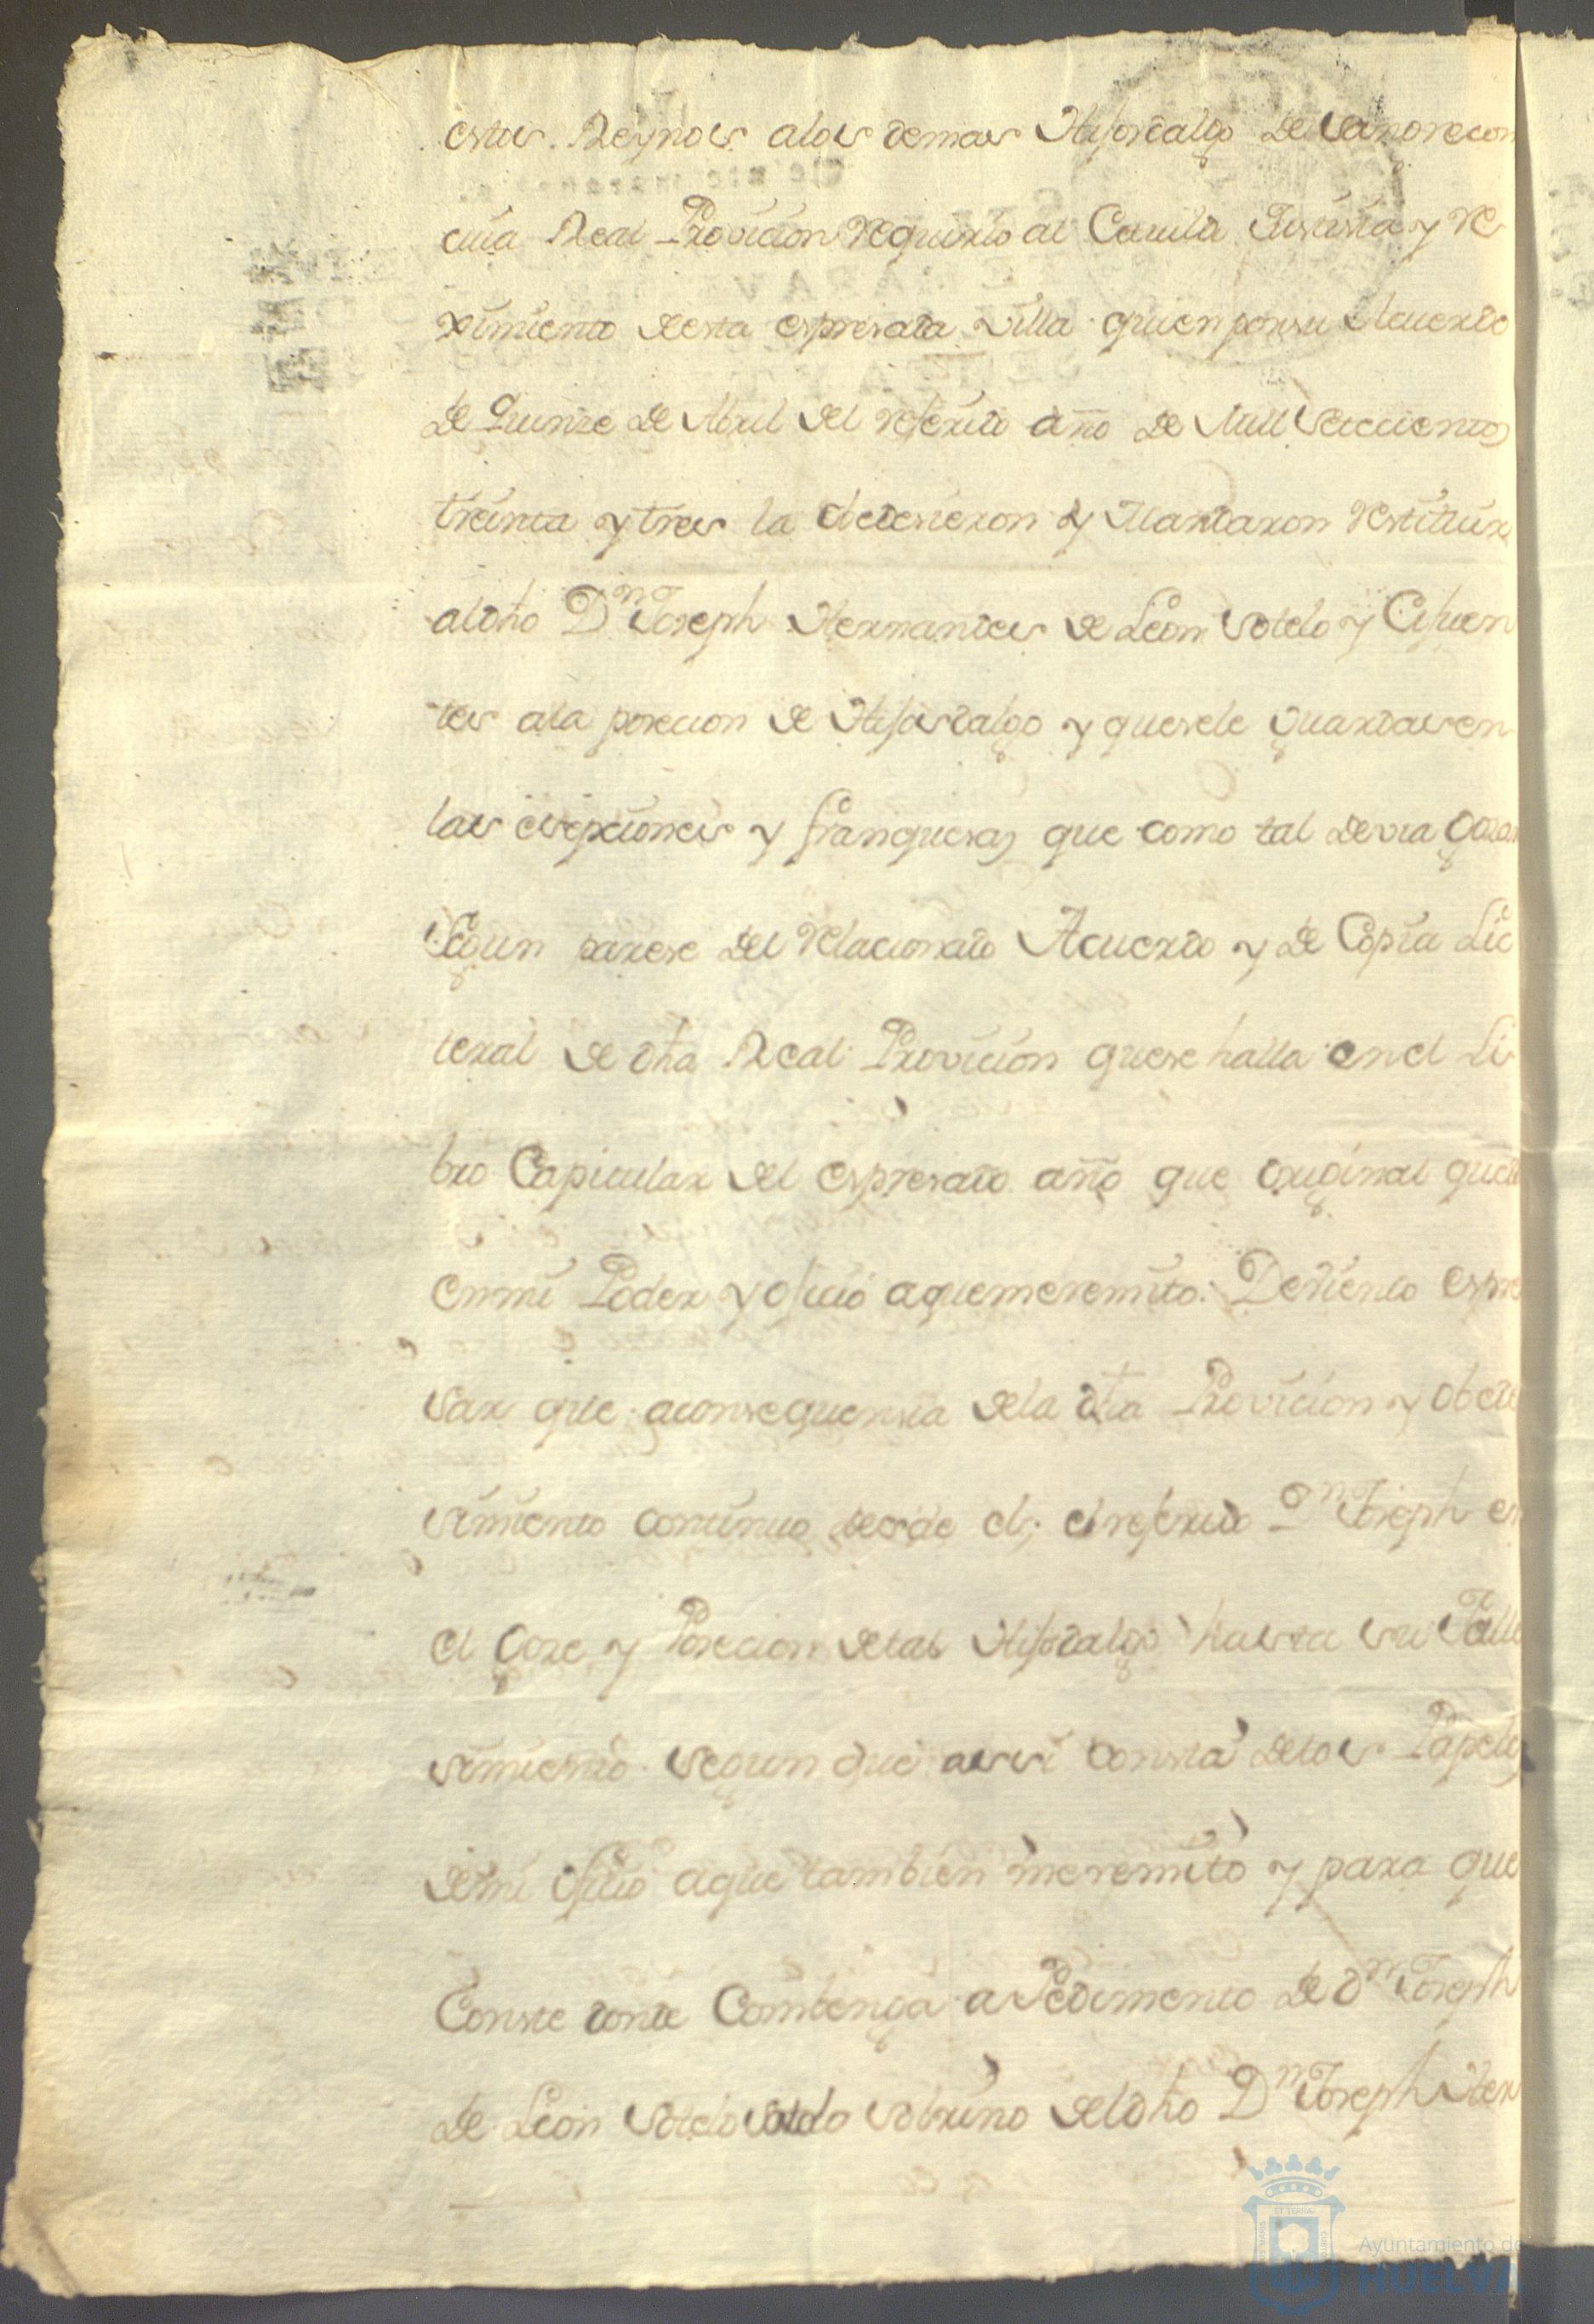 estos Reynos alos demas Hijosdalgo de sangre con
cuia Real Provicion requirio al Cavildo Justisia y Re
ximiento desta espresada villa quien por su Acuerdo
de Quinze de Abril del referido año de Mill Setecientos
treinta y tres la obedesieron y Mandaron restituir
al dho Dn Joseph Hernandes de Leon Sotelo y Cifuen
tes ala posecion de Hijosdalgo y quesele guardasen
las esepciones y franquesas que como tal devia gozar
Segun parese del relacionado Acuerdo y de Copia Lit
teral de dha Real Provicion quese halla enel Li
bro Capitular del espresado año que original queda
enmi Poder y ofisio aquemeremito: Deviendo espre
sar que aconsequensia dela dha Provicion y obede
simiento continuo desde el; el referido Dn Joseph en
el Goze y Posecion detal Hijodalgo hasta su Falle
simiento segun que assi consta delos Papeles
demi ofisio aque tambien meremito y para que
Conste donde Combenga a Pedimento de Dn Joseph
de Leon Sotelo Sotelo sobrino deldho Dn Joseph Her
Ayuntamiento de
HUELVA